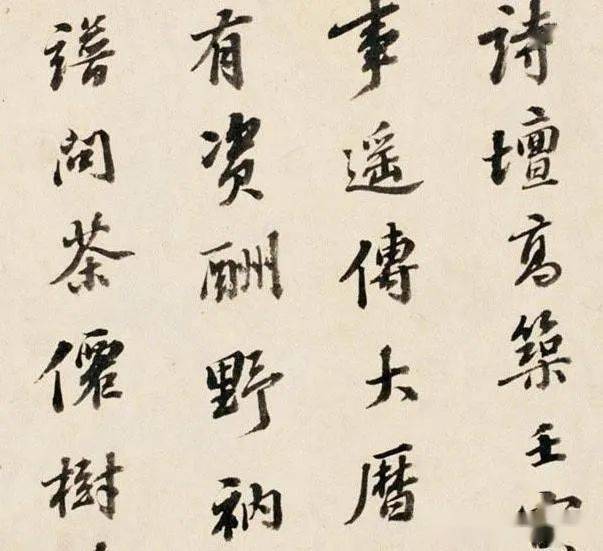 詩壇高築壬
事遥傳大曆
有資酬野衲
譜問茶僊樹